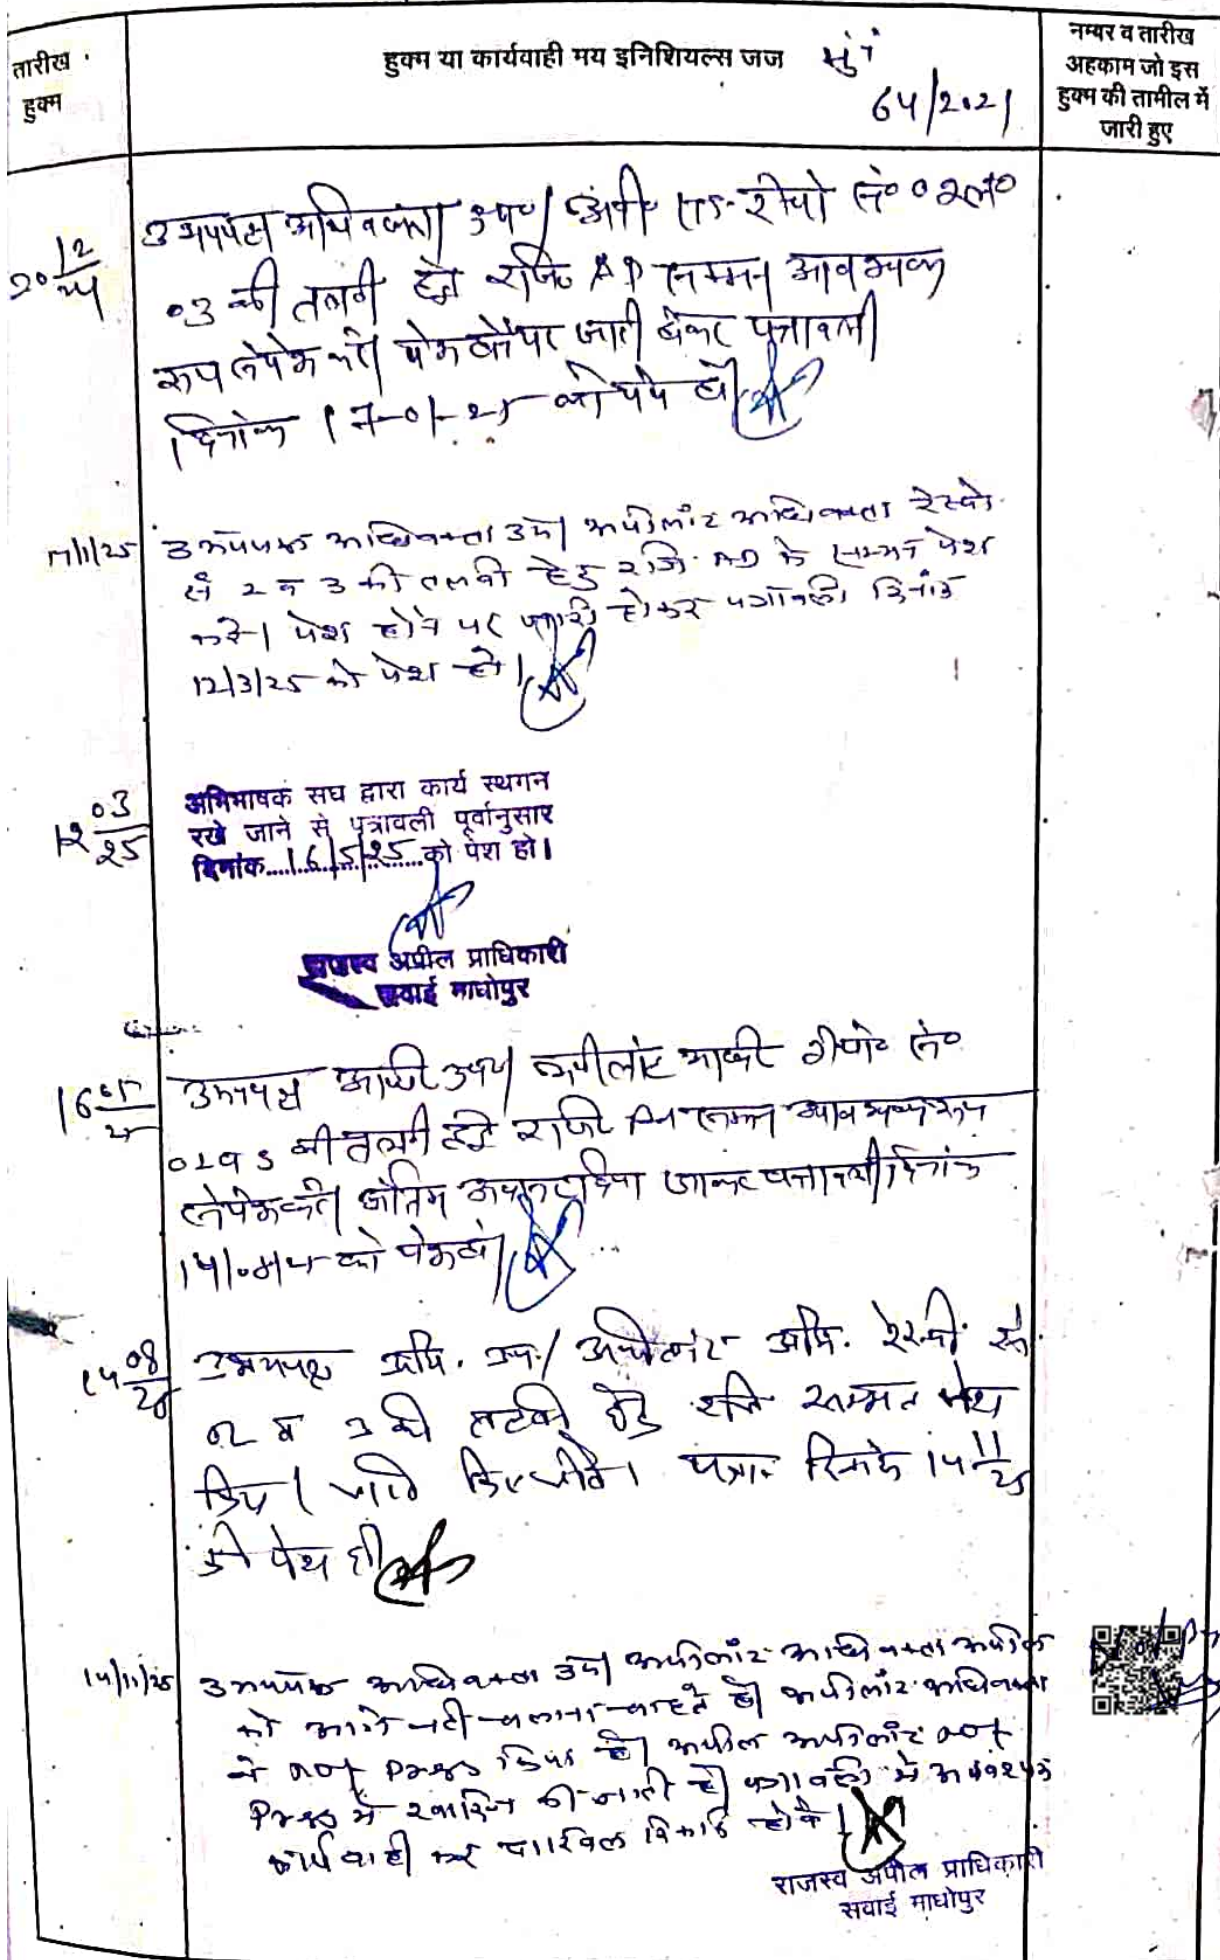 तारीख
हुक्म
हुक्म या कार्यवाही मय इनिशियल्स जज
64/2021
नम्बर व तारीख
अहकाम जो इस
हुक्म की तामील में
जारी हुए
20 12/24
उभयपक्ष अधिवक्ता उप०।
03 की तलबी हेतु रजि० AD सम्मन आवश्यक
रूप से पेश करें। पेश होने पर जारी होकर पत्रावली
दिनांक 17-01-25 को पेश हो।
17/1/25
उभयपक्ष अधिवक्ता उप। अपीलांट अधिवक्ता रेस्पो.
सं 2 व 3 की तलबी हेतु रजि. AD के सम्मन पेश
करे। पेश होने पर जारी होकर पत्रावली दिनांक
12/3/25 को पेश हो।
12 03/25
अभिभाषक संघ द्वारा कार्य स्थगन
रखे जाने से पत्रावली पूर्वानुसार
दिनांक 16/5/25 को पेश हो।
राजस्व अपील प्राधिकारी
सवाई माधोपुर
16 05/25
उभयपक्ष उप। अपीलांट सं०
की तलबी हेतु रजि सम्मन आवश्यक रूप
से पेश करे। अंतिम अवसर दिया जाकर पत्रावली दिनांक
को पेश हो।
14 08/25
उभयपक्ष अधि. उप.। अपीलांट अधि. रेस्पो. सं.
02 व 3 की तलबी हेतु रजि सम्मन पेश
किए। जारी किए जावे। पत्रा. दिनांक 14 11/25
को पेश हो।
14/11/25
उभयपक्ष अधिवक्ता उप। अपीलांट अधिवक्ता अपील
को आगे नही चलाना चाहते है। अपीलांट अधिवक्ता
ने not press किया है। अपील अपीलांट not
press मे खारिज की जाती है। पत्रावली मे आवश्यक
कार्यवाही कर दाखिल रिकार्ड होवे।
राजस्व अपील प्राधिकारी
सवाई माधोपुर